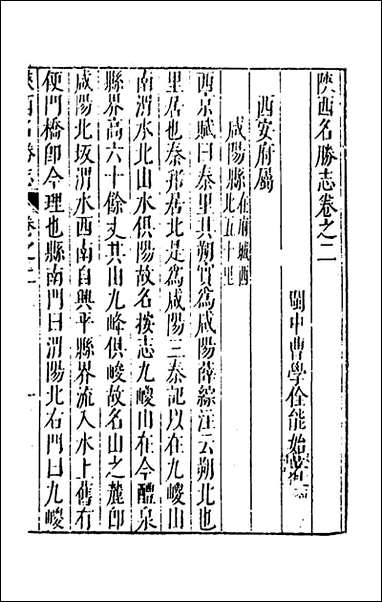 陝西名勝志卷之二
閩中曹學佺能始
西安府屬
咸陽縣在府城西北五十里
西京賦曰秦里其朔實為咸陽薛綜注云朔北也
秦孝居北是為咸陽三秦記以在九嵕山
南渭水北山水俱陽故名按志九嵕山在今醴泉
縣界高六十餘丈其山九峰俱峻故名山之麓即
咸陽北坂渭水西南自興平縣界流入水上舊有
便門橋即今理也縣南門曰渭陽北右門曰九嵕
陝西名勝志 卷之二 一